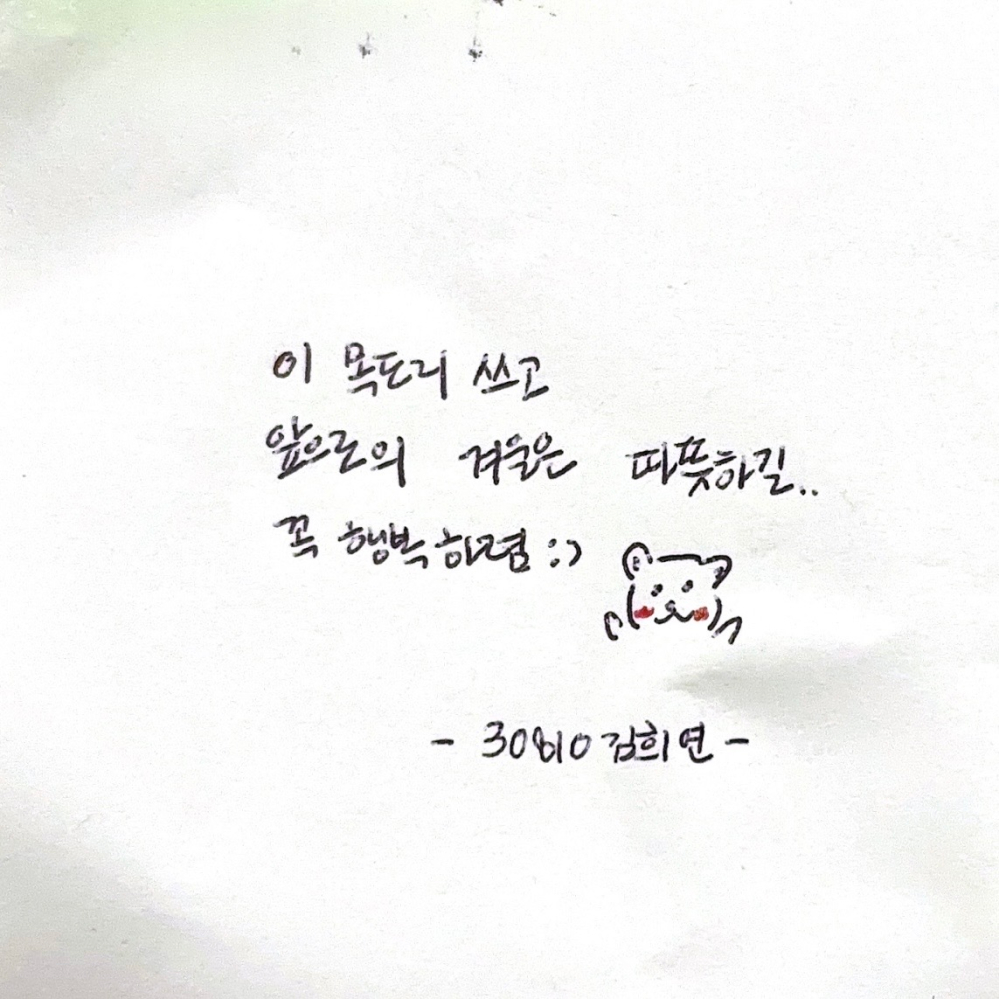 이 목도리 쓰고
앞으로의 겨울은 따뜻하길..
꼭 행복하렴 :)
- 30810 김희연 -